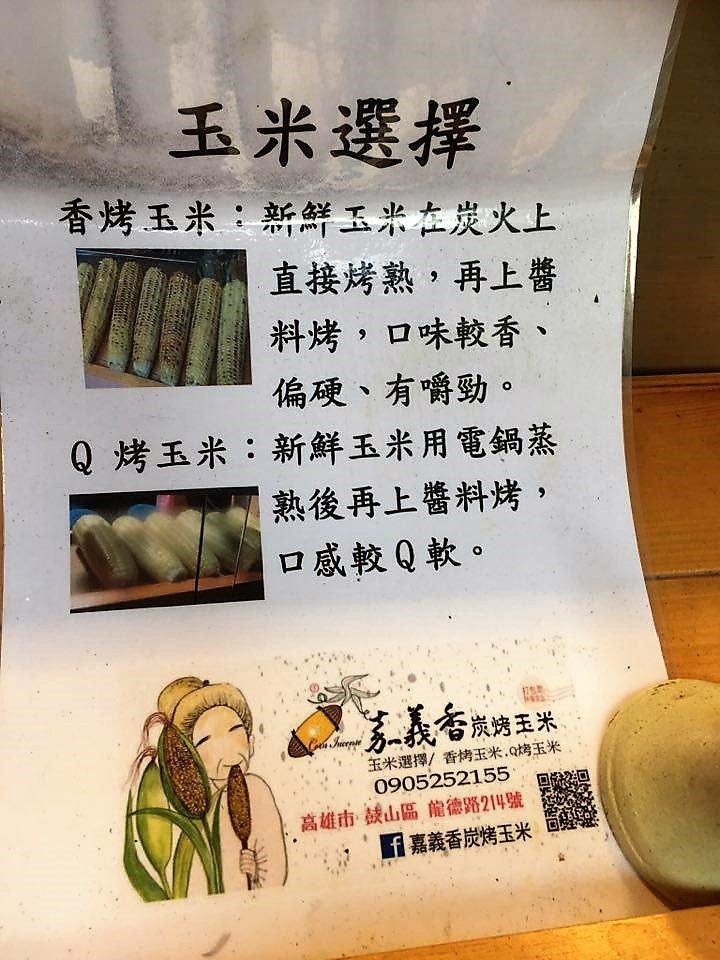 玉米選擇
香烤玉米：新鮮玉米在炭火上
直接烤熟，再上醬
料烤，口味較香、
偏硬、有嚼勁。
Q 烤玉米：新鮮玉米用電鍋蒸
熟後再上醬料烤，
口感較Q軟。
Corn Incense
嘉義香炭烤玉米
玉米選擇/ 香烤玉米.Q烤玉米
0905252155
高雄市 鼓山區 龍德路214號
f 嘉義香炭烤玉米